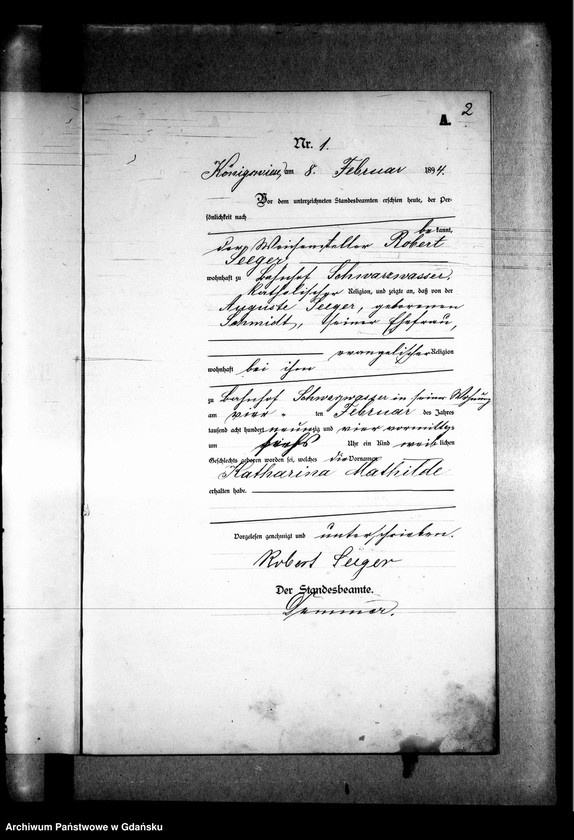 2
A.
Nr. 1.
Königswiese, am 8. Februar 1894.
Vor dem unterzeichneten Standesbeamten erschien heute, der Per-
sönlichkeit nach
bekannt,
der Weichensteller Robert
Seeger,
wohnhaft zu Bahnhof Schwarzwasser,
katholischer Religion, und zeigte an, daß von der
Auguste Seeger, geborenen
Schmidt, seiner Ehefrau,
evangelischer Religion
wohnhaft bei ihm
zu Bahnhof Schwarzwasser in seiner Wohnung
am vier ten Februar des Jahres
tausend acht hundert neunzig und vier vormittags
um sechs Uhr ein Kind weiblichen
Geschlechts geboren worden sei, welches die Vornamen
Katharina Mathilde
erhalten habe.
Vorgelesen, genehmigt und unterschrieben.
Robert Seeger
Der Standesbeamte.
Archiwum Państwowe w Gdańsku